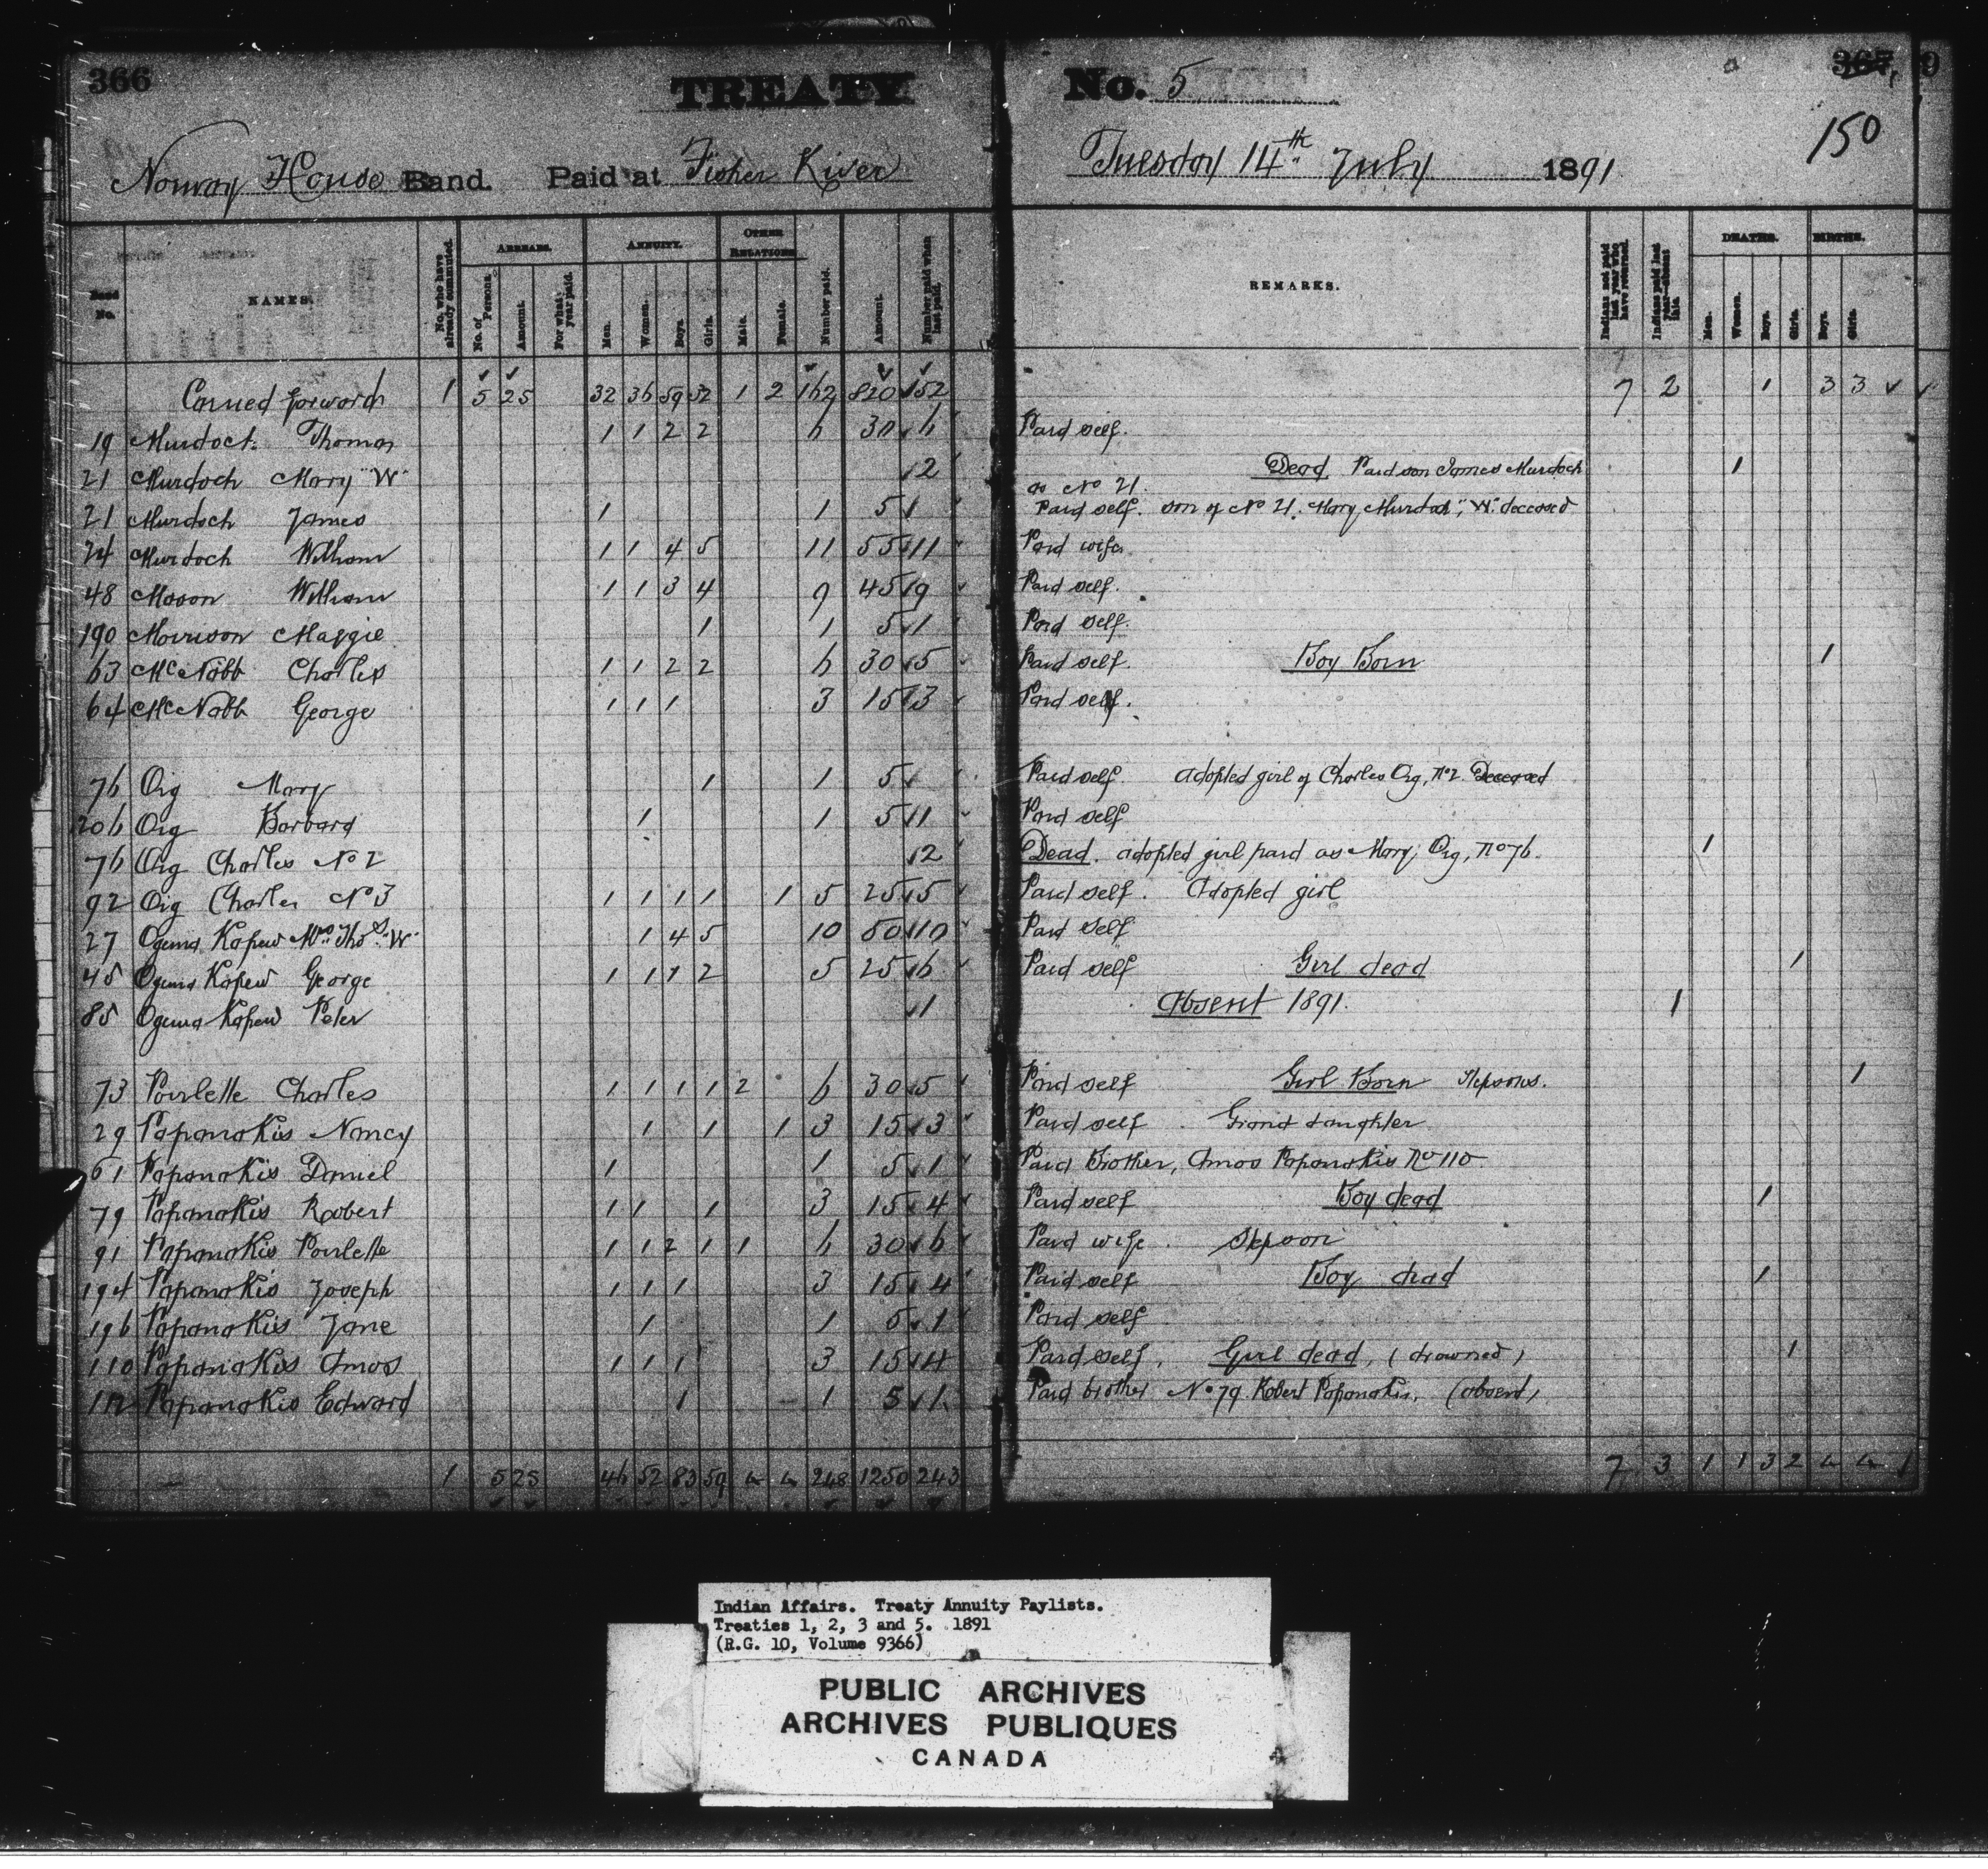 366
TREATY No. 5
367
150
Norway House Band. Paid at Fisher River Tuesday 14th July 1891
Band No.
NAMES.
No. who have already commuted.
ARREARS.
No. of Persons.
Amount.
For what year paid.
ANNUITY.
Men.
Women.
Boys.
Girls.
OTHER RELATIONS
Male.
Female.
Number paid.
Amount.
Number paid when last paid.
REMARKS.
Indians not paid last year who have returned.
Indians paid last year—absent this.
DEATHS.
Men.
Women.
Boys.
Girls.
BIRTHS.
Boys.
Girls.
Carried forward 1 5 25 32 36 59 32 1 2 162 820 152 7 2 1 3 3
19 Murdoch Thomas 1 1 2 2 6 30 6 Paid self.
21 Murdoch Mary "W" 2 Dead. Paid son James Murdoch 1
as No 21.
21 Murdoch James 1 1 5 1 Paid self. son of No 21. Mary Murdoch, "W" deceased
24 Murdoch William 1 1 4 5 11 55 11 Paid wife
48 Mason William 1 1 3 4 9 45 9 Paid self.
190 Morrison Maggie 1 1 5 1 Paid self.
63 McNabb Charles 1 1 2 2 6 30 5 Paid self. Boy Born 1
64 McNabb George 1 1 1 3 15 3 Paid self.
76 Oig Mary 1 1 5 Paid self adopted girl of Charles Oig, No 2 Deceased
206 Oig Barbara 1 1 5 1 Paid self
76 Oig Charles No 2 2 Dead. adopted girl paid as Mary Oig, No 76. 1
92 Oig Charles No 3 1 1 1 1 1 5 25 5 Paid self. Adopted girl
27 Ogema Kapew Mrs Thos "W" 1 4 5 10 50 10 Paid self
45 Ogema Kapew George 1 1 1 2 5 25 6 Paid self Girl dead 1
85 Ogema Kapew Peter 1 Absent 1891. 1
73 Pourlette Charles 1 1 1 1 2 6 30 5 Paid self Girl Born Stepsons. 1
29 Papanakis Nancy 1 1 1 3 15 3 Paid self. Grand daughter
61 Papanakis Daniel 1 1 5 1 Paid Brother, Amos Papanakis No 110
79 Papanakis Robert 1 1 1 3 15 4 Paid self Boy dead 1
91 Papanakis Pourlette 1 1 2 1 1 6 30 6 Paid wife. Stepson
194 Papanakis Joseph 1 1 1 3 15 4 Paid self Boy dead 1
196 Papanakis Jane 1 1 5 1 Paid self
110 Papanakis Amos 1 1 1 3 15 4 Paid self, Girl dead, (drowned) 1
Papanakis Edward 1 1 5 1 Paid brother No 79 Robert Papanakis, (absent)
1 5 25 46 52 83 59 4 4 248 1250 243 7 3 1 1 3 2 4 4
Indian Affairs. Treaty Annuity Paylists.
Treaties 1, 2, 3 and 5. 1891
(R.G. 10, Volume 9366)
PUBLIC ARCHIVES
ARCHIVES PUBLIQUES
CANADA